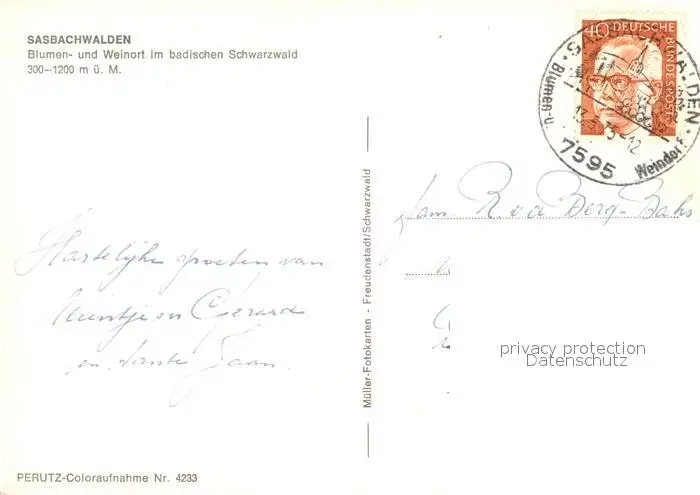 SASBACHWALDEN
Blumen- und Weinort im badischen Schwarzwald
300—1200 m ü. M.
40 DEUTSCHE BUNDESPOST
SASBACHWALDEN
Blumen-u. Weindorf
7595
Hartelijke groeten van
en Gerard
en tante Jaan.
Fam. Berg-Bahs
Müller-Fotokarten - Freudenstadt/Schwarzwald
privacy protection
Datenschutz
PERUTZ-Coloraufnahme Nr. 4233